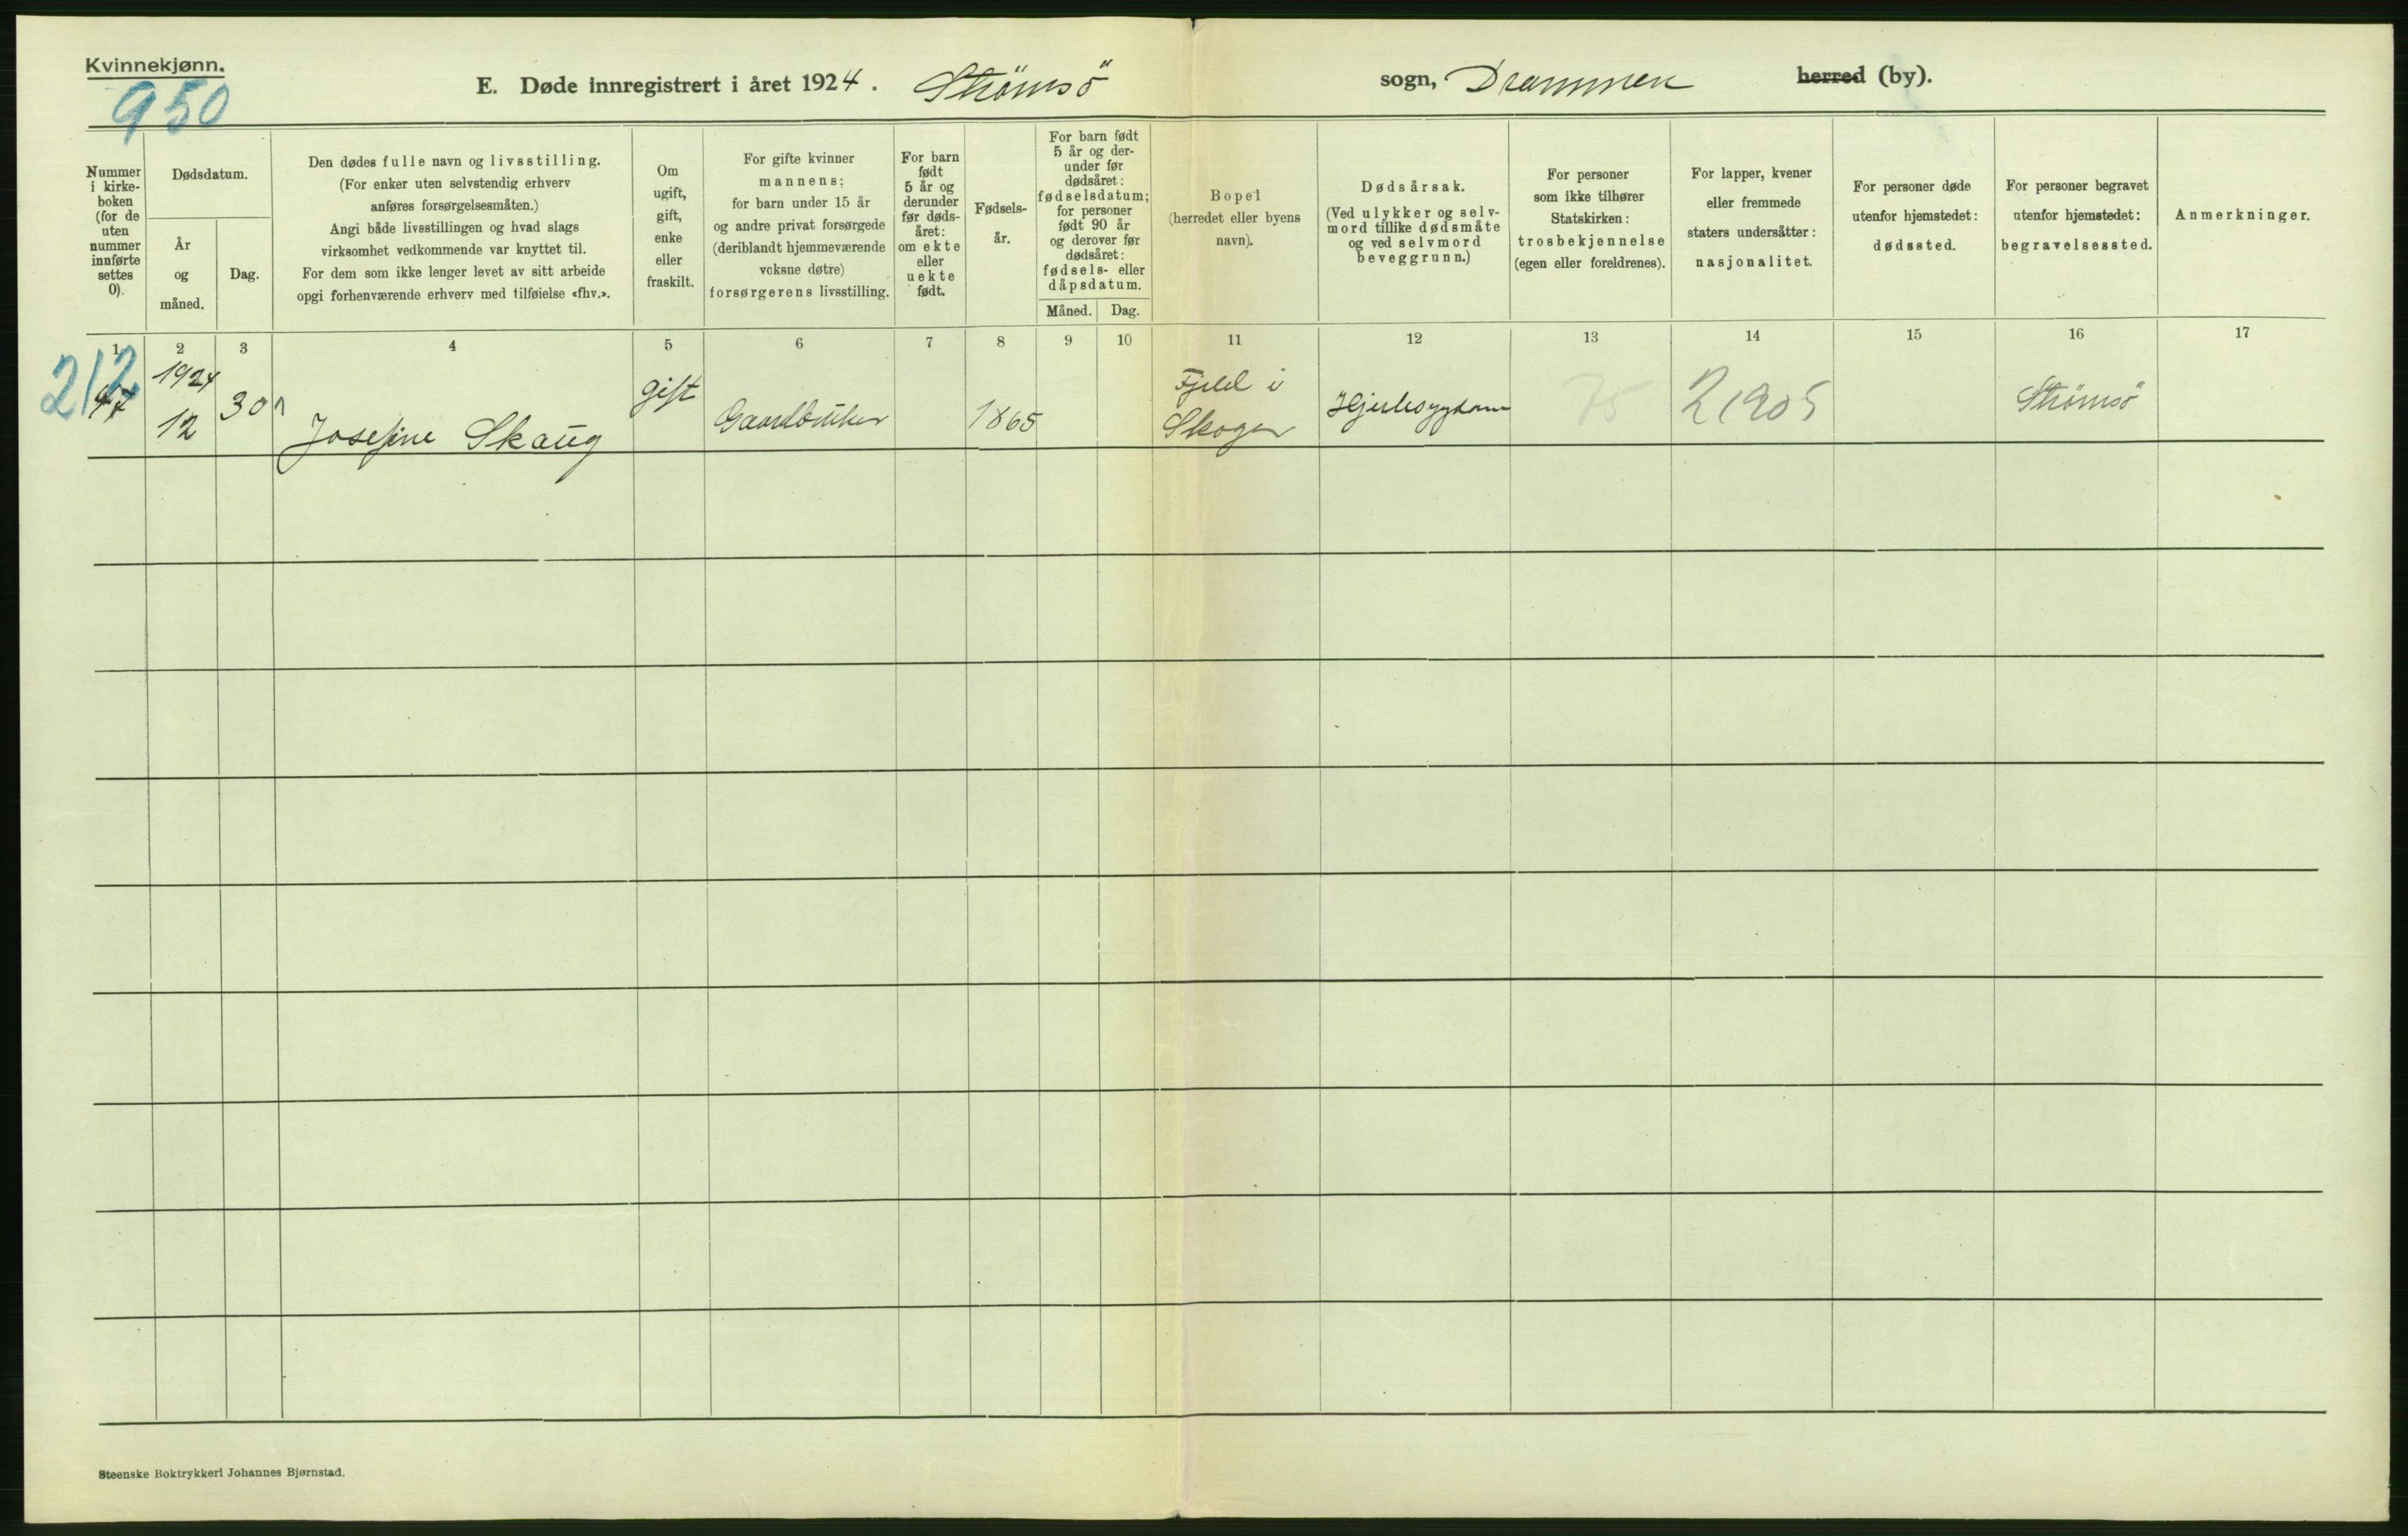 Kvinnekjønn.
950
E. Døde innregistrert i året 1924. Strömsö sogn, Drammen herred (by).
Nummer
i kirke-
boken
(for de
uten
nummer
innførte
settes
0).
Dødsdatum.
År
og
måned.
Dag.
Den dødes fulle navn og livsstilling.
(For enker uten selvstendig erhverv
anføres forsørgelsesmåten.)
Angi både livsstillingen og hvad slags
virksomhet vedkommende var knyttet til.
For dem som ikke lenger levet av sitt arbeide
opgi forhenværende erhverv med tilføielse «fhv.».
Om
ugift,
gift,
enke
eller
fraskilt.
For gifte kvinner
mannens;
for barn under 15 år
og andre privat forsørgede
(deriblandt hjemmeværende
voksne døtre)
forsørgerens livsstilling.
For barn
født
5 år og
derunder
før døds-
året:
om ekte
eller
uekte
født.
Fødsels-
år.
For barn født
5 år og der-
under før
dødsåret:
fødselsdatum;
for personer
født 90 år
og derover før
dødsåret:
fødsels- eller
dåpsdatum.
Måned. Dag.
Bopel
(herredet eller byens
navn).
Dødsårsak.
(Ved ulykker og selv-
mord tillike dødsmåte
og ved selvmord
beveggrunn.)
For personer
som ikke tilhører
Statskirken:
trosbekjennelse
(egen eller foreldrenes).
For lapper, kvener
eller fremmede
staters undersåtter:
nasjonalitet.
For personer døde
utenfor hjemstedet:
dødssted.
For personer begravet
utenfor hjemstedet:
begravelsessted.
Anmerkninger.
1 2 3 4 5 6 7 8 9 10 11 12 13 14 15 16 17
212
47
1924
12
30
Josefine Skaug
gift
Gaardbruker
1865
Fjeld i
Skoger
Hjertesygdom
75
21905
Strömsö
Steenske Boktrykkeri Johannes Bjørnstad.